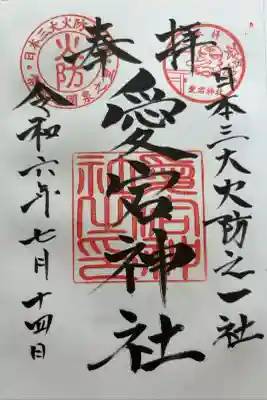 奉拝
日本三大火防之一社
愛宕神社
令和六年七月十四日
火防
愛宕神社
愛宕神
社之印